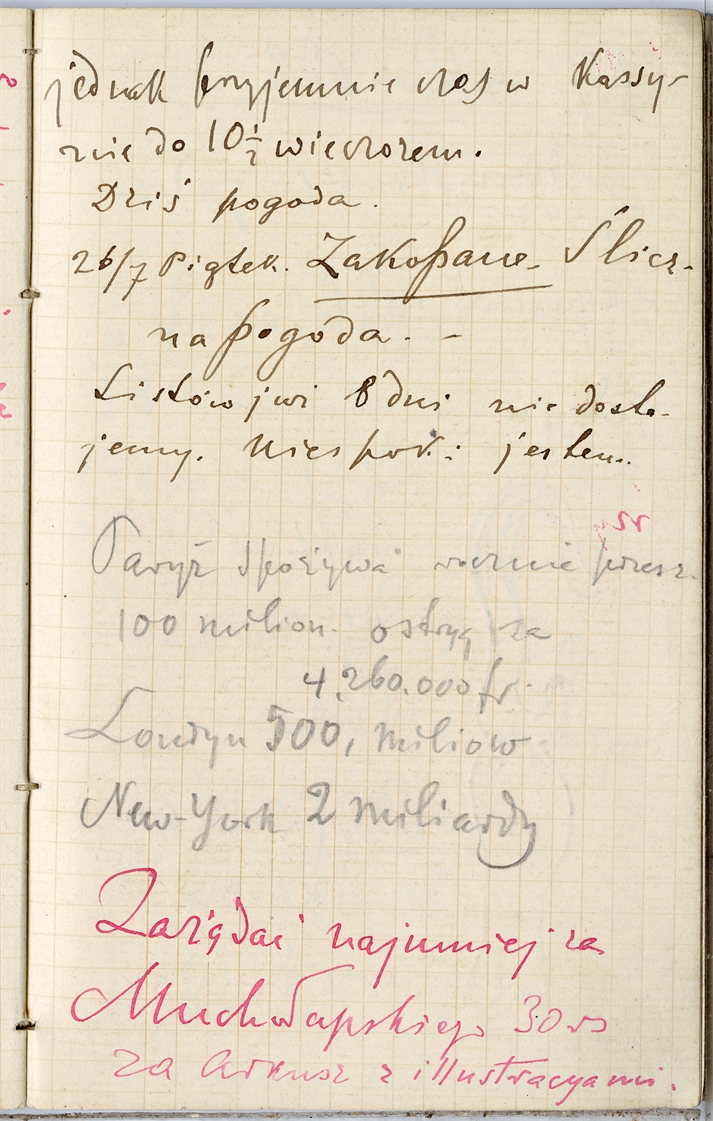 jednak przyjemnie czas w Kassy-
nie do 10 1/2 wieczorem.
Dziś pogoda.
26/7 Piątek. Zakopane - Ślicz-
na pogoda. -
Listów już 8 dni nie dosta-
jemy. jestem.
Paryż spożywa rocznie przesz.
100 milion. ostryg za
4.260.000 fr.
Londyn 500, milionów
New-York 2 miliardy
Zażądać najmniej za
Muchołapskiego 30 rs
za arkusz z illustracyami.